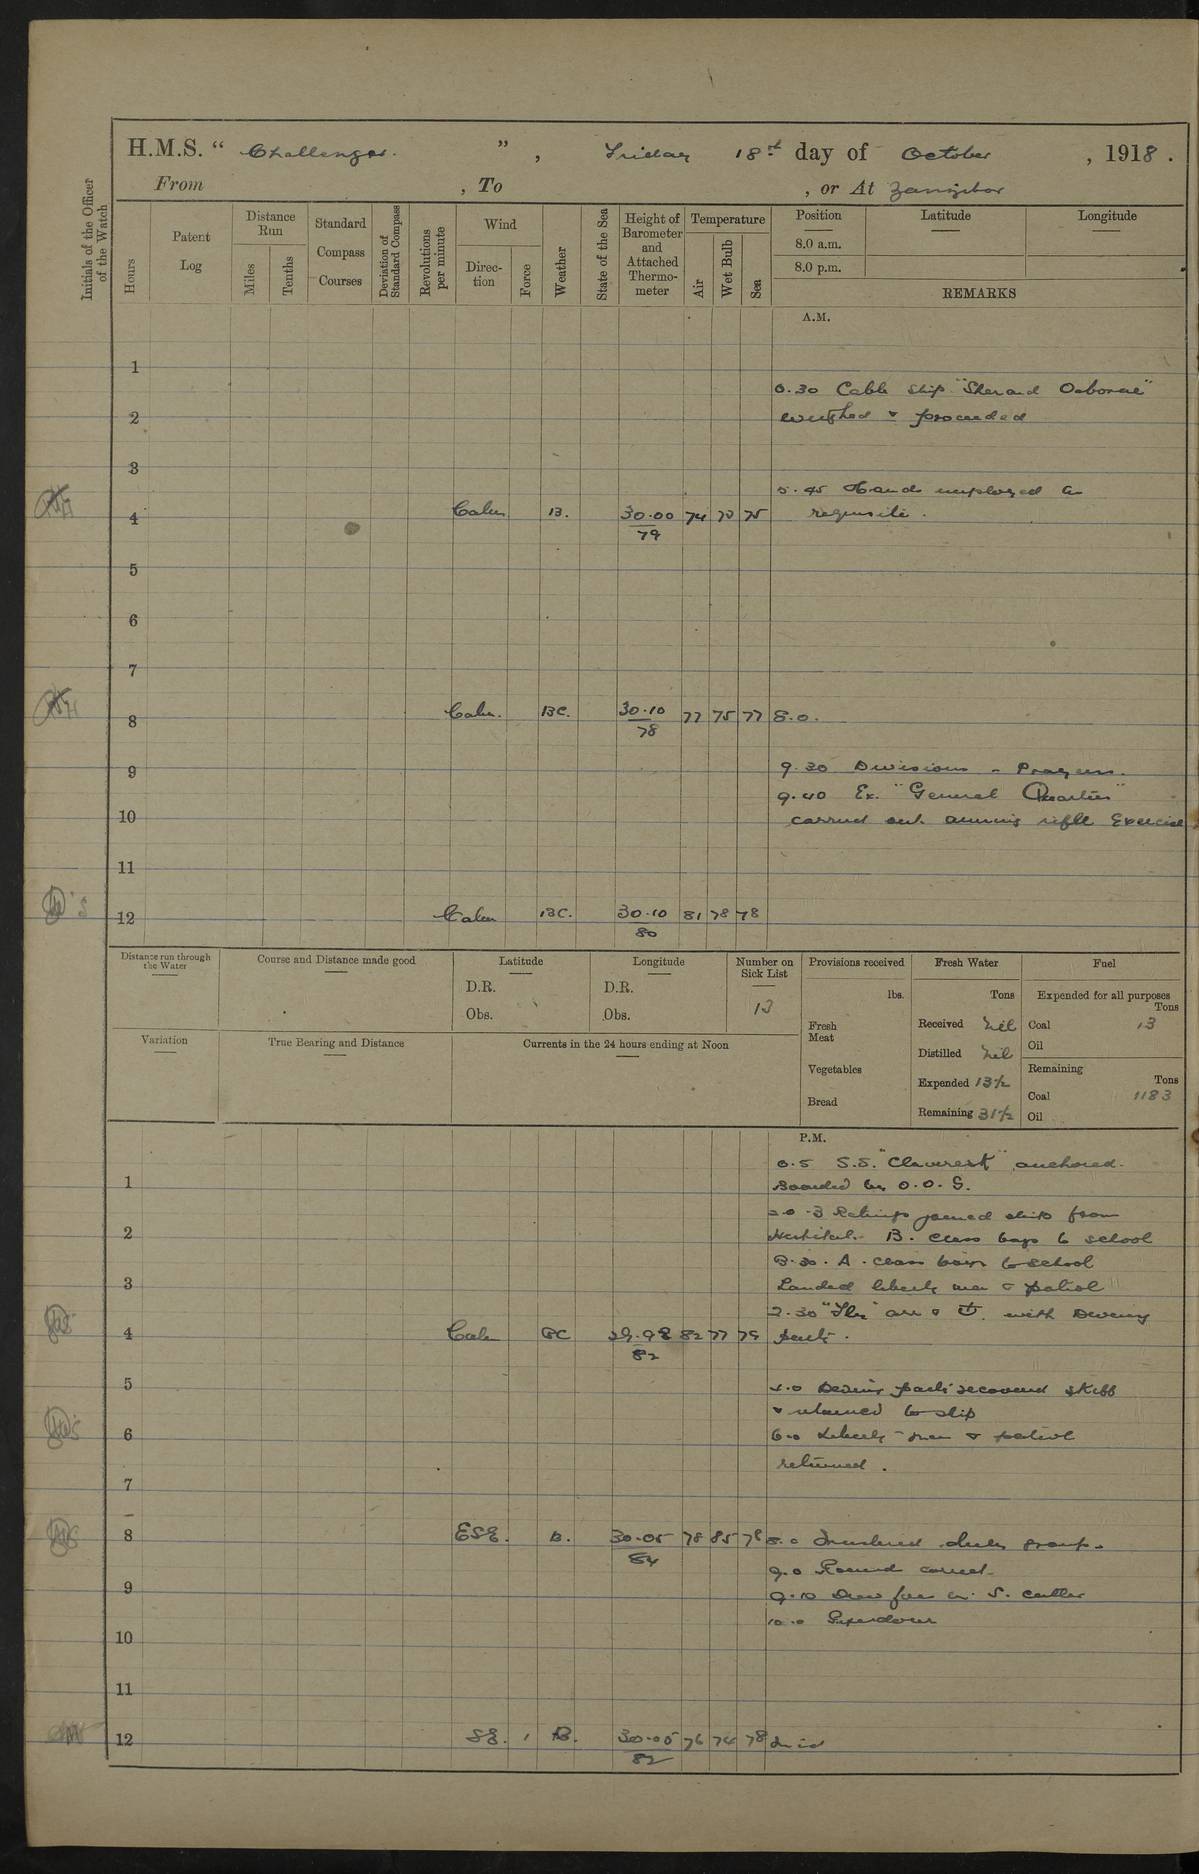 H.M.S. " Challenger. " , Friday 18th day of October , 1918 .
From , To , or At Zanzibar
Initials of the Officer of the Watch
Hours
Patent Log
Distance Run
Miles
Tenths
Standard Compass Courses
Deviation of Standard Compass
Revolutions per minute
Wind
Direction
Force
Weather
State of the Sea
Height of Barometer and Attached Thermometer
Temperature
Air
Wet Bulb
Sea
Position
8.0 a.m.
8.0 p.m.
Latitude
Longitude
REMARKS
A.M.
1
0.30 Cable ship "Sherard Osborne"
2
weighed & proceeded
3
5.45 Hands employed as
4 Calm B. 30.00 74 73 75 requisite .
79
5
6
7
8 Calm. BC. 30.10 77 75 77 8.0.
78
9
9.30 Divisions - Prayers.
9.40 Ex. "General Quarters"
10
carried out aiming rifle Exercise
11
12 Calm BC. 30.10 81 78 78
80
Distance run through the Water
Course and Distance made good
Latitude
D.R.
Obs.
Longitude
D.R.
Obs.
Number on Sick List
13
Provisions received
lbs.
Fresh Meat
Vegetables
Bread
Fresh Water
Tons
Received Nil
Distilled Nil
Expended 13½
Remaining 31½
Fuel
Expended for all purposes
Tons
Coal 13
Oil
Remaining
Tons
Coal 1183
Oil
Variation
True Bearing and Distance
Currents in the 24 hours ending at Noon
P.M.
0.5 S.S. "Claveresk" anchored.
1
Boarded by O.O.G.
3 Ratings joined ship from
2
Hospital. B. class boys to school
A. class boys to school
3
Landed liberty men & patrol
2.30 arr & with Diving
4 Calm BC 29.98 82 77 79 party.
82
5
Diving party recovered skiff
& returned to ship
6
6.0 Liberty men & patrol
returned .
7
8 ESE. B. 30.05 78 85 78 8.0 Mustered duty
84
9.0 Rounds correct.
9
9.10 in S. cutter
10.0 Piped down
10
11
12 SE. 1 B. 30.05 76 74 78 Mid
82